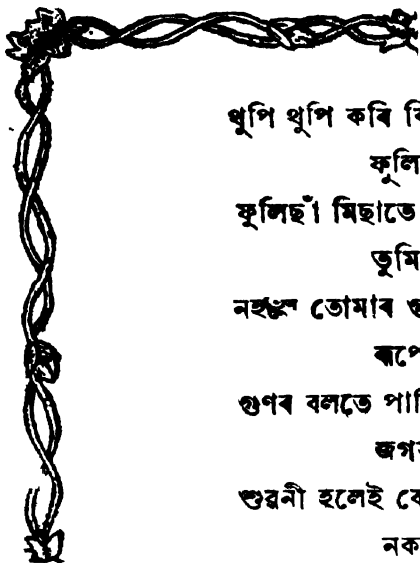 থুপি থুপি কৰি
ফুলি
ফুলিছাঁ মিছাতে
তুমি
তোমাৰ
ৰূপে
গুণৰ বলতে
জগ
শুৱনী হলেই
নক